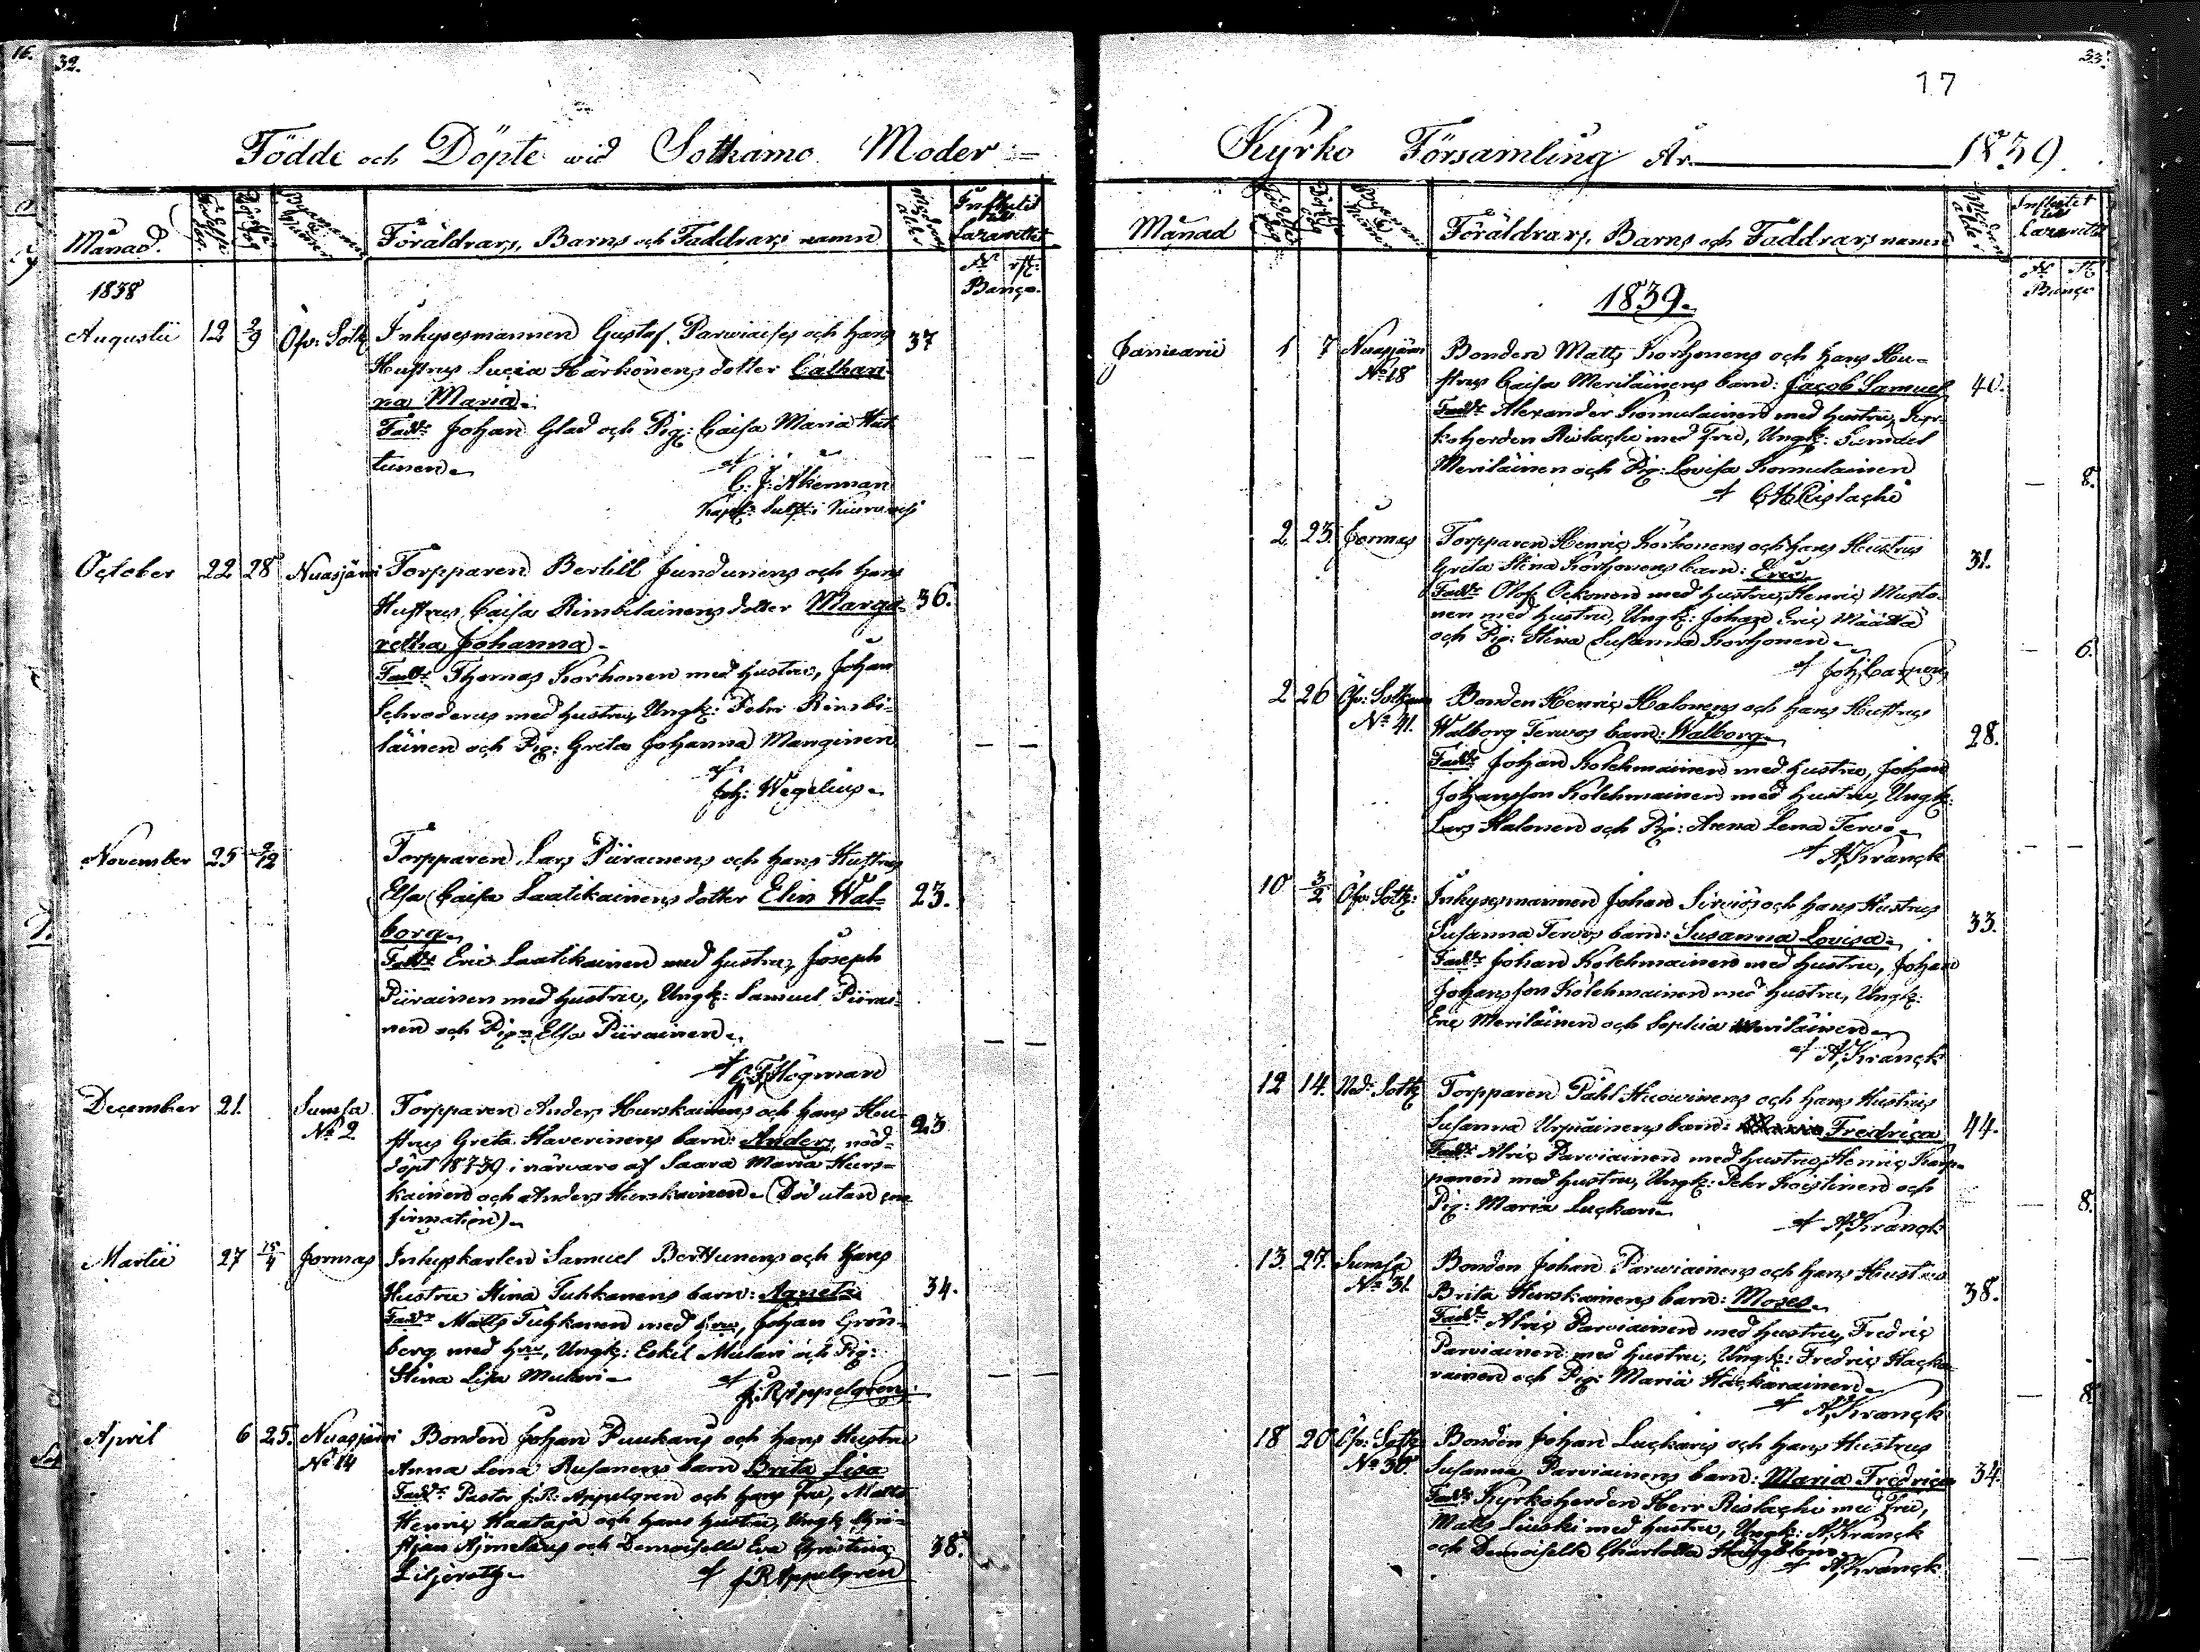 16.
32.
Födde och Döpte wid Sotkamo Moder =
Månad.
Föräldrars, Barns och Faddrars namn
Moders ålder
Influtit till Lazarettet
Banço.
1838
Augustii 12 2/9 Öfv: Sotk
Inhysesmannen Gustaf Parwiaises och hans
Hustrus Lucia Härkönens dotter Cathari- 37
na Maria.
Fadd: Johan Glad och Pig: Caisa Maria Hut-
tunen
af
C. J. Åkerman
October 22 28 Nuasjärvi Torpparen Bertill Jundunens och hans
Hustrus Caisa Rimbilainens dotter Marga- 36.
retha Johanna.
Fadd: Thomas Korhonen med hustru, Johan
Schroderus med hustru, Ungk: Petr Rimbi-
läinen och Pig: Greta Johanna Manginen
af
Joh: Wegelius
November 25 2/12 Torpparen Lars Piirainens och hans Hustrus
Elsa Caisa Laatikainens dotter Elin Wal- 23.
borg
Fadd: Eric Laatikainen med hustru, Joseph
Piirainen med hustru, Ungk: Samuel Piirai-
nen och Pig: Elsa Piirainen
af G. F. Högman
December 21. Sumsa Torpparen Anders Hurskainens och hans Hu-
No 2 strus Greta Haverinens barn: Anders, nöd- 23
döpt 18 7/1 39 i närvaro af Saara Maria Hurs-
kainen och Anders Hurskainen (Död utan con-
firmation)
Martii 27 15/4 Jormas Inhyskarlen Samuel Berttunens och hans
Hustru Stina Tuhkanens barn: Agneta 34.
Fadd: Matts Tuhkanen med hru, Johan Grön-
berg med hru, Ungk: Eskil Mulari och Pig:
Stina Lisa Mulari
af J. R. Appelgren
April 6 25. Nuasjärvi Bonden Johan Puukaris och hans Hustru
No 14 Anna Lena Rusanens barn Brita Lisa
Fadd: Pastor J. R. Appelgren och hans fru, Matts
Henric Haataja och hans hustru, Ungk Chri-
stjan Ajmelæus och Demoiselle Eva Christina 38.
Liljeroth
af J. R. Appelgren
33.
17
Kyrko Församling År 1839.
Månad
Föräldrars, Barns och Faddrars namn
Influtit till Lazarettet
Banço
1839.
Januarii 1 7 Nuasjärvi Bonden Matts Korhonens och hans Hu-
No 18 strus Caisa Meriläinens barn: Jacob Samuel 40.
Fadd: Alexander Komulainen med hustru, Kyr-
koherden Rislachi med Fru, Ungk: Samuel
Meriläinen och Pig: Lovisa Komulainen 8.
af C H Rislachi
2 23. Jormas Torpparen Henric Korhonens och hans Hustrus
Greta Stina Korhonens barn: Eric 31.
Fadd: Olof Ockonen med hustru, Henric Musto-
nen med hustru, Ungk: Johan Eric Määttä
och Pig: Stina Susanna Korhonen 6.
af Joh. Cajanus
2 26 Öfv: Sotkam Bonden Henric Halonens och hans Hustrus
No 41. Walborg Tervos barn: Walborg 28.
Fadd: Johan Kolehmainen med hustru, Johan
Johansson Kolehmainen med hustru, Ungk:
Lars Halonen och Pig: Anna Lena Tervo
af A. Kranck
10 3/2 Öfv: Sotk: Inhysesmannen Johan Sirviös och hans Hustrus
Susanna Tervos barn: Susanna Lovisa 33.
Fadd: Johan Kolehmainen med hustru, Johan
Johansson Kolehmainen med hustru, Ungk:
Eric Meriläinen och Sophia Meriläinen
af A. Kranck
12 14. Ned: Sotk Torpparen Påhl Huovinens och hans Hustrus
Susanna Urpiainens barn: Fredrica 44.
Fadd: Alric Parviainen med hustru, Henric Karp-
panen med hustru, Ungk: Peter Koistinen och
Pig: Maria Luckari 8.
af A. Kranck
13. 27. Sumsa Bonden Johan Parwiainens och hans Hustrus
No 31 Brita Hurskainens barn: Moses 38.
Fadd: Alric Parviainen med hustru, Fredric
Parviainen med hustru, Ungk: Fredric Hacka-
rainen och Pig: Maria Hackarainen 8
af A. Kranck
18 20 Öfv: Sotk Bonden Johan Luckaris och hans Hustrus
No 30. Susanna Parviainens barn: Maria Fredrica 34.
Fadd: Kyrkoherden Herr Rislachi med Fru,
Matts Liuski med hustru, Ungk: A. Kranck
och Demoiselle Charlotta
af A. Kranck